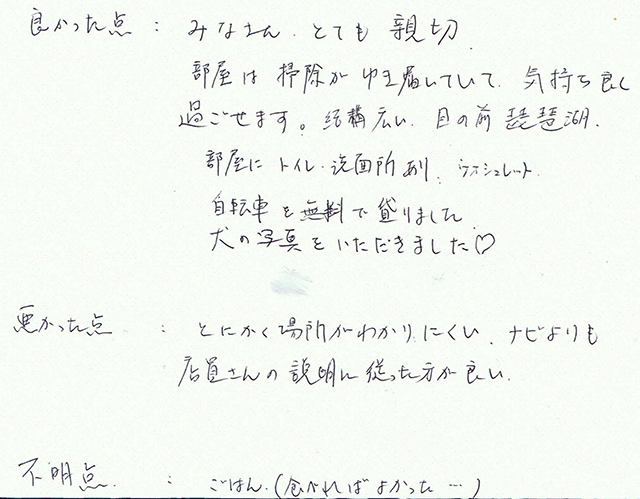 良かった点 : みなさん、とても 親切
部屋は 掃除が ゆき届いていて、気持ち良く
過ごせます。結構広い、目の前 琵琶湖、
部屋に トイレ・洗面所 あり、ウォシュレット、
自転車を 無料で 貸りました
犬の写真をいただきました♡
悪かった点 : とにかく場所がわかりにくい、ナビよりも
店員さんの説明に従った方が良い、
不明点、 : ごはん、(食べればよかった…)